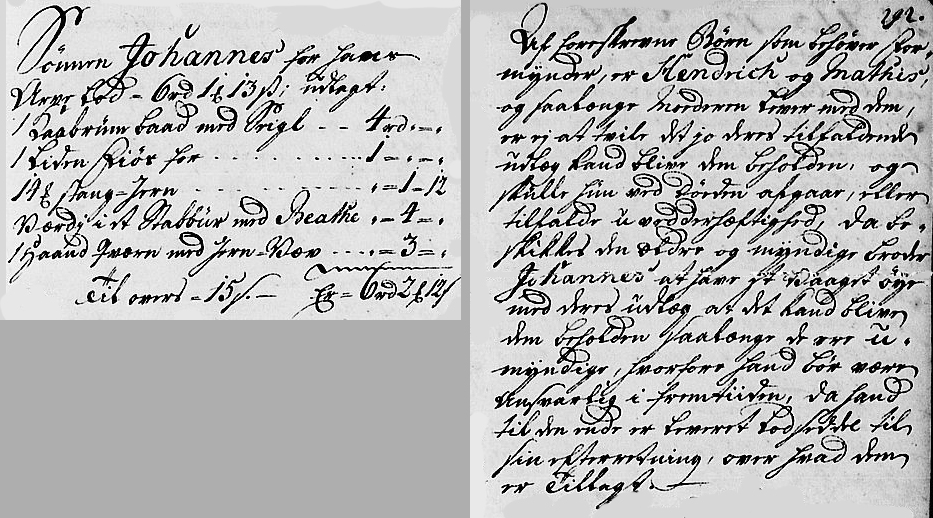 Sönnen Johannes for hans
Arve Lod = 6rd 1 13 s: udlagt:
1 baad med Seigl - - 4rd = „
1 Liden for . . . . . . . . . 1 = „ = „
14 stang = Jern . . . . . . . . „ = 1 = 12
Værdj i et Stabbur med Beathe „ = 4 = „
1 Haand Qværn med Jern = Væv . . . „ = 3 = „
Til overs = 15 s. — Er = 6rd 2 12 s
292.
Af foreskrevne Börn som behöver for=
mynder, er Hendrich og Mathis,
og saalænge Moederen Lever med dem,
er ej at tvile det jo deres tilfaldende
udlæg kand blive dem beholden, og
skulle hun ved Döeden afgaar, eller
tilfalde u vederhæftighed, da be=
skikkes den ældre og myndige broder
Johannes at have et Vaaget öye
med deres udlæg at det kand blive
dem beholden saalænge de ere u=
myndige, hvorfore hand bör være
Ansvarlig i fremtiiden, da hand
til den ende er Leveret Lodseddel til
sin efterretning, over hvad dem
er Tillagt.